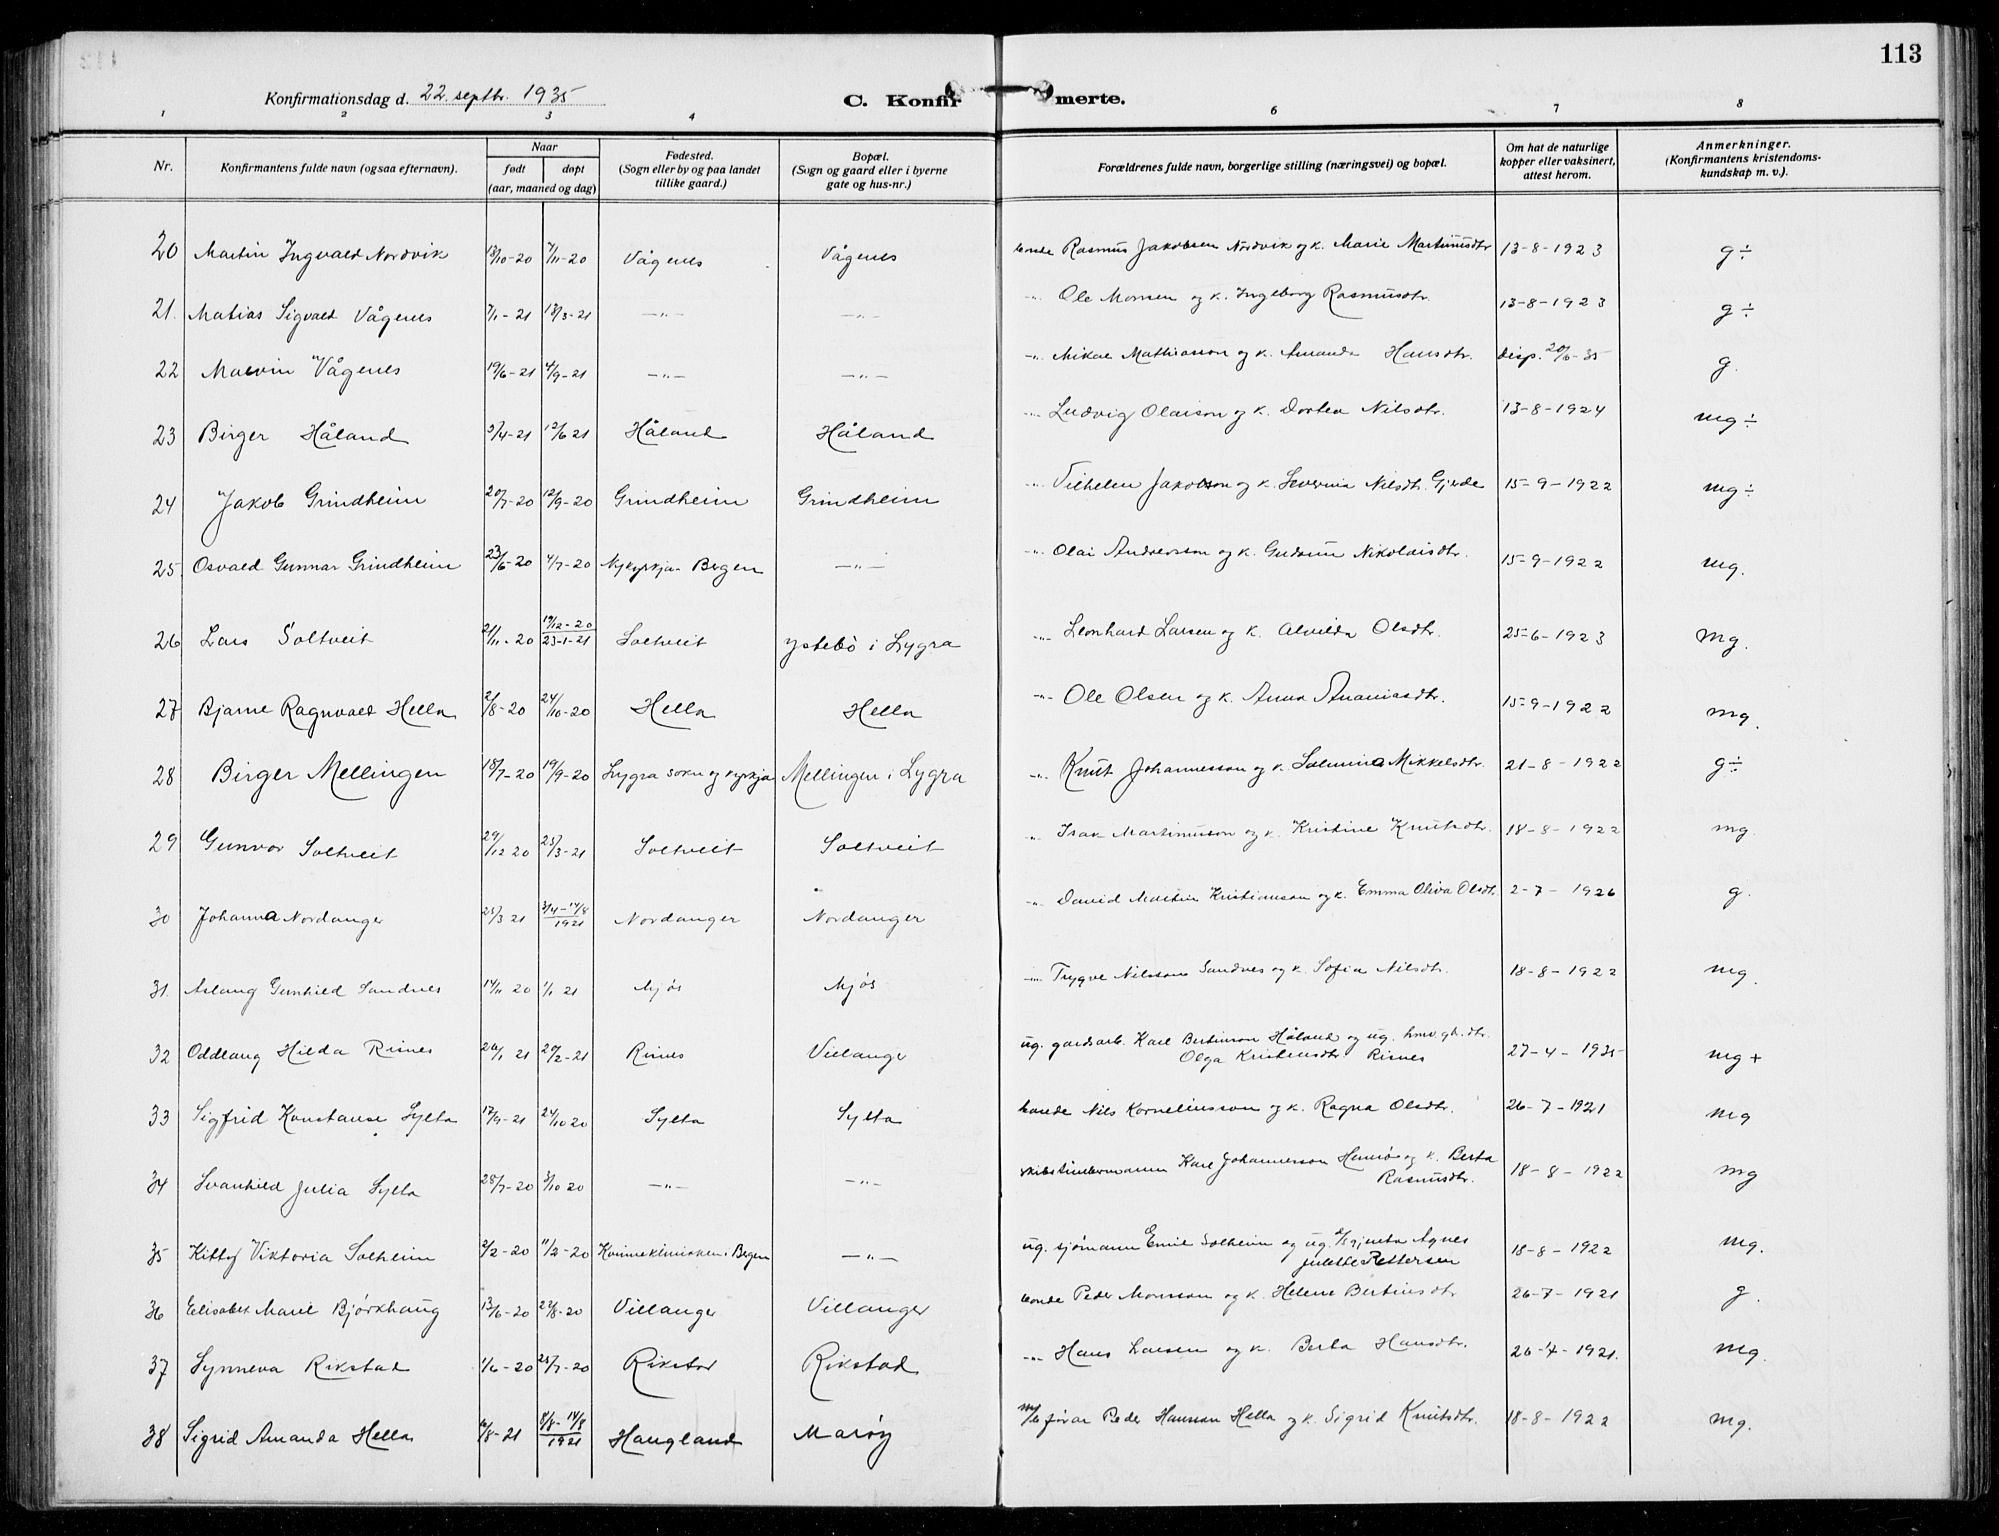 113
Konfirmationsdag d. 22. septbr. 1935
C. Konfirmerte.
1 2 3 4 6 7 8
Nr. Konfirmantens fulde navn (ogsaa efternavn). Naar født døpt (aar, maaned og dag) Fødested. (Sogn eller by og paa landet tillike gaard.) Bopæl. (Sogn og gaard eller i byerne gate og hus-nr.) Forældrenes fulde navn, borgerlige stilling (næringsvei) og bopæl. Om hat de naturlige kopper eller vaksinert, attest herom. Anmerkninger. (Konfirmantens kristendomskundskap m. v.).
20 Martin Ingvald Nordvik 13/10-20 7/11-20 Vågenes Vågenes bonde Rasmus Jakobsen Nordvik og k. Marie Martinusdtr 13-8-1923 g÷
21. Matias Sigvald Vågenes 7/1-21 13/3-21 —„— —„— -„- Ole Monsen og k. Ingeborg Rasmusdtr. 13-8-1923 g÷
22 Malvin Vågenes 19/6-21 4/9-21 —„— —„— -„- Mikal Mathiasson og k. Amanda Hansdtr. disp. 20/6-35 g.
23 Birger Håland 9/4-21 12/6 21 Håland Håland -„- Ludvig Olaison og k. Dortea Nilsdtr. 13-8-1924 mg÷
24 Jakob Grindheim 20/7-20 12/9-20 Grindheim Grindheim -„- Vilhelm Jakobson og k. Severina Nilsdtr. Gjerde 15-9-1922 mg÷
25 Osvald Gunnar Grindheim 23/5-20 4/7-20 Nykyrkja-Bergen —„— -„- Olai Andersson og k. Gudrun Nikolaisdtr. 15-9-1922 mg.
26 Lars Soltveit 21/11-20 19/12-20 23-1-21 Soltveit Ystebø i Lygra -„- Leonhard Larsen og k. Alvilda Olsdtr. 25-6-1923 mg.
27 Bjarne Ragnvald Hella 2/8-20 24/10-20 Hella Hella -„- Ole Olsen og k. Anna Ananiasdtr. 15-9-1922 mg.
28 Birger Mellingen 18/7-20 19/9-20 Lygra sokn og kyrkja Mellingen i Lygra -„- Knut Johannesson og k. Salmina Mikkelsdtr. 21-8-1922 g÷
29 Gunvor Soltveit 29/12 20 23/3-21 Soltveit Soltveit „ Isak Martinusson og k. Kristine Knutsdtr. 18-8-1922 mg.
30 Johanna Nordanger 25/3 21 3/4-14/8 1921 Nordanger Nordanger „ David Martin Kristianson og k. Emma Oliva Olsdtr. 2-7-1926 g.
31. Aslaug Gunhild Sandnes 14/11 20 1/1 21 Mjøs Mjøs -„- Trygve Nilsson Sandnes og k. Sofia Nilsdtr. 18-8-1922 mg.
32 Oddlaug Hilda Risnes 20/1 21 20/2-21 Risnes Villanger ug. gardsarb. Karl Bertinson Håland og ug. hmv. gb. dtr. Olga Kristensdtr Risnes 27-4-1935 mg+
33 Sigfrid Konstanse Sylta 17/9-21 24/10 20 Sylta Sylta bonde Nils Korneliusson og k. Ragna Olsdtr. 26-7-1921 mg
34 Svanhild Julia Sylta 28/7-20 3/10 20 —„— —„— skibstimbermann Karl Johannesson Hamsø og k. Berta Rasmusdtr. 18-8-1922 mg
35 Kitty Viktoria Solheim 2/2-20 11/2-20 Kvinneklinikken i Bergen —„— ug. sjømann Emil Solheim og ug. gjenta Agnes Julette Pettersen 18-8-1922 mg.
36 Elisabet Marie Bjørkhaug 13/6-20 22/8-20 Villanger Villanger bonde Peder Monsson og k. Helene Bertinsdtr 26-7-1921 g.
37 Synneva Rikstad 1/6-20 25/7-20 Rikstad Rikstad -„- Hans Larsen og k. Berta Hansdtr. 26-4-1921. mg.
38 Sigrid Amanda Hella 6/8-21 8/8-14/8 1921 Haugland Marøy m/b førar Peder Hansson Hella og k. Sigrid Knutsdtr. 18-8-1922 mg.